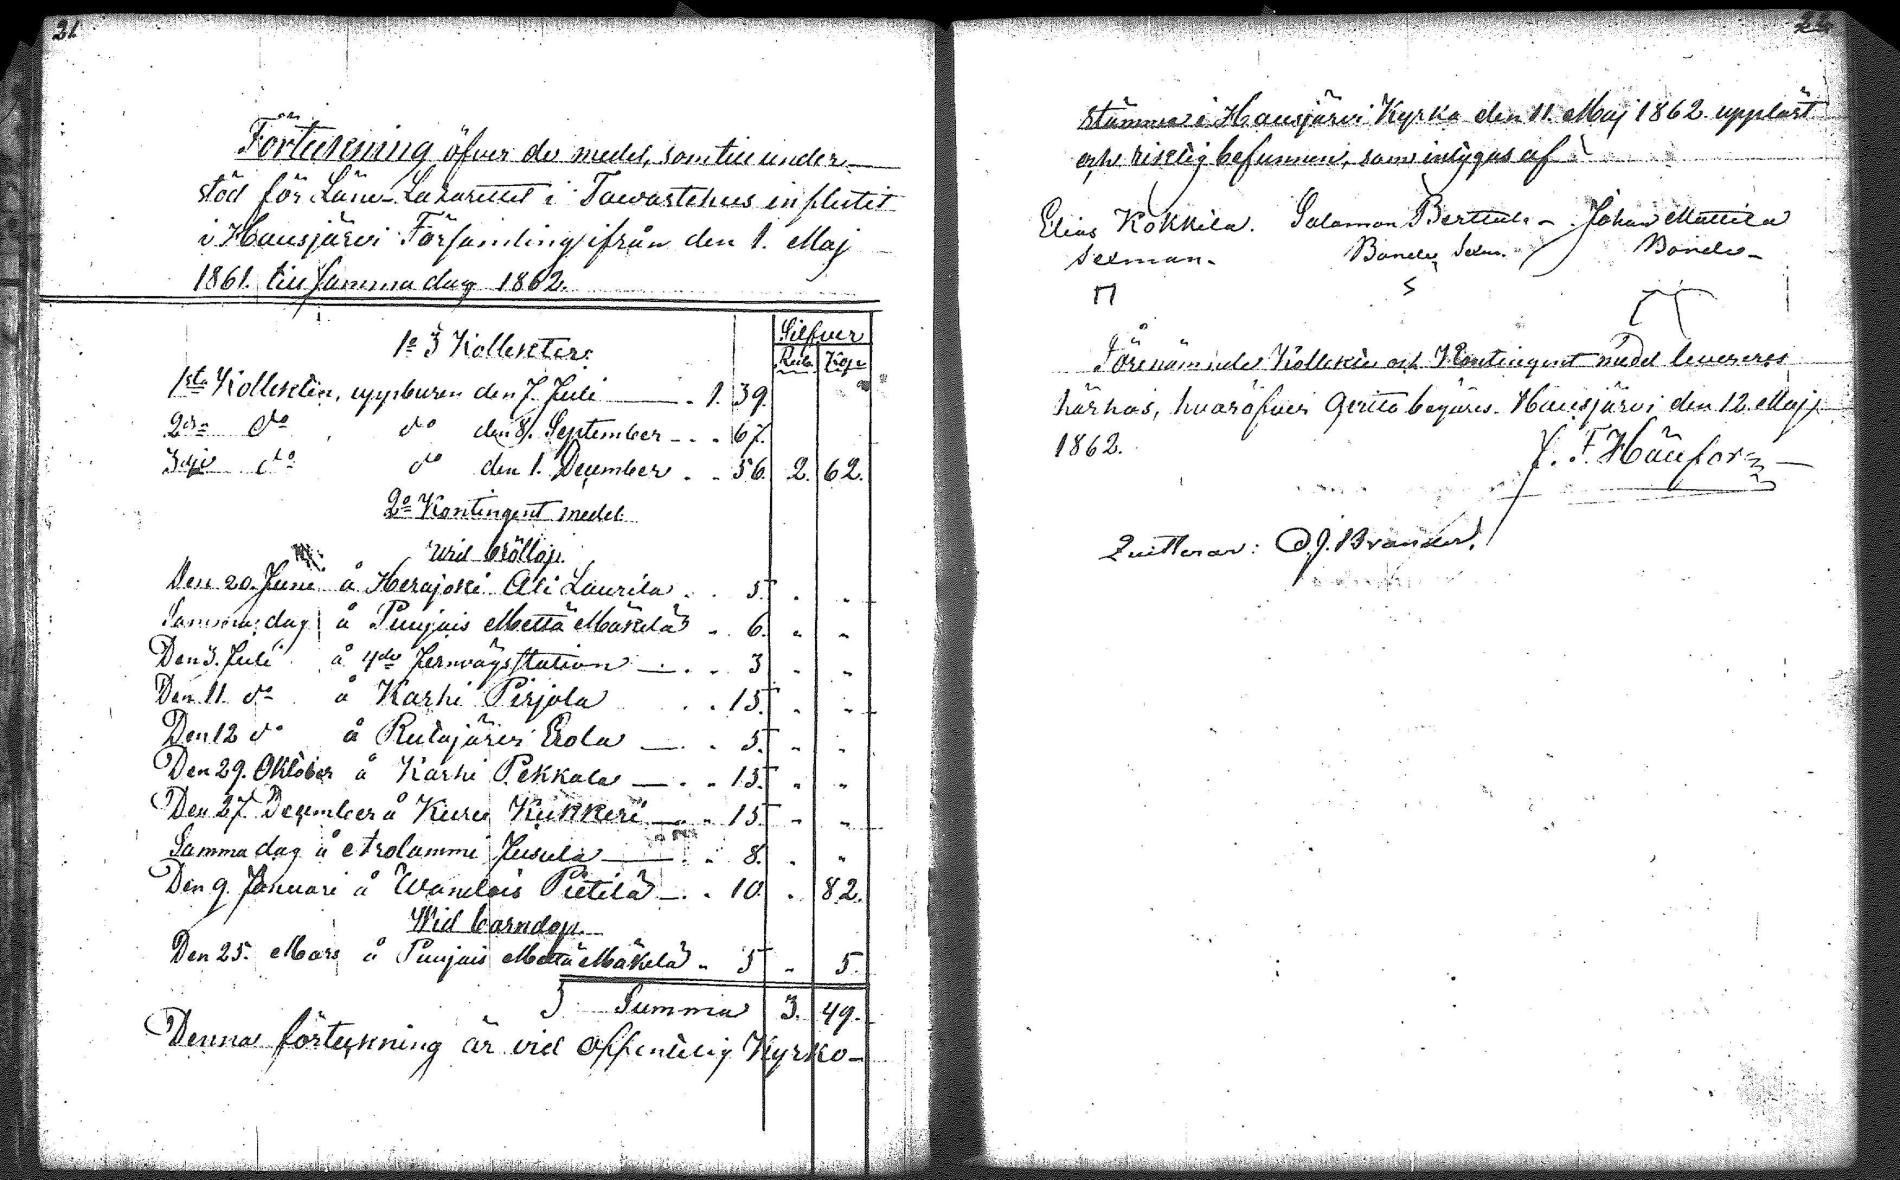 21
Förteckning öfver de medel, som till under-
stöd för Läns-Lazarettet i Tawastehus influtit
i Hausjärvi Församling ifrån den 1. Maj
1861. till samma dag 1862.
Silfver
1o 3 Kollekter:
Rub. Kop.
1sta Kollekten, uppburen den 7. Juli 1. 39.
2dra do do den 8. September 67.
3dje do do den 1. December 56. 2. 62.
2o Kontingent medel
wid bröllop.
Den 20. Juni å Herajoki Ali Laurila 5.
Samma dag å Puujais Mettä Mäkelä 6.
Den 3. Juli å 4de Jernvägsstation 3
Den 11. do å Karhi Pirjola 15.
Den 12 do å Ridasjärvi Erola 5.
Den 29. Oktober å Karhi Pekkala 15.
Den 27. December å Kuru Kukkeri 15.
Samma dag å Jusula 8.
Den 9. Januari å Wantais Pietilä 10. 82.
Wid barndop.
Den 25. Mars å Puujais Mettä Mäkelä 5 5.
Summa 3. 49.
Denna förteckning är vid offentelig Kyrko-
22
stämma i Hausjärvi Kyrka den 11. Maj 1862. uppläst
och riktig befunnen, som intygas af
Elias Kokkila. Salomon Berttula Johan Mattila
Sexman. Bonde Sexm. Bonde
Förenämnde Kollekt och Kontingent medel levereras
härhos, hvaröfver qvitto begäres. Hausjärvi den 12. Maj
1862.
Quitterar: Brander.